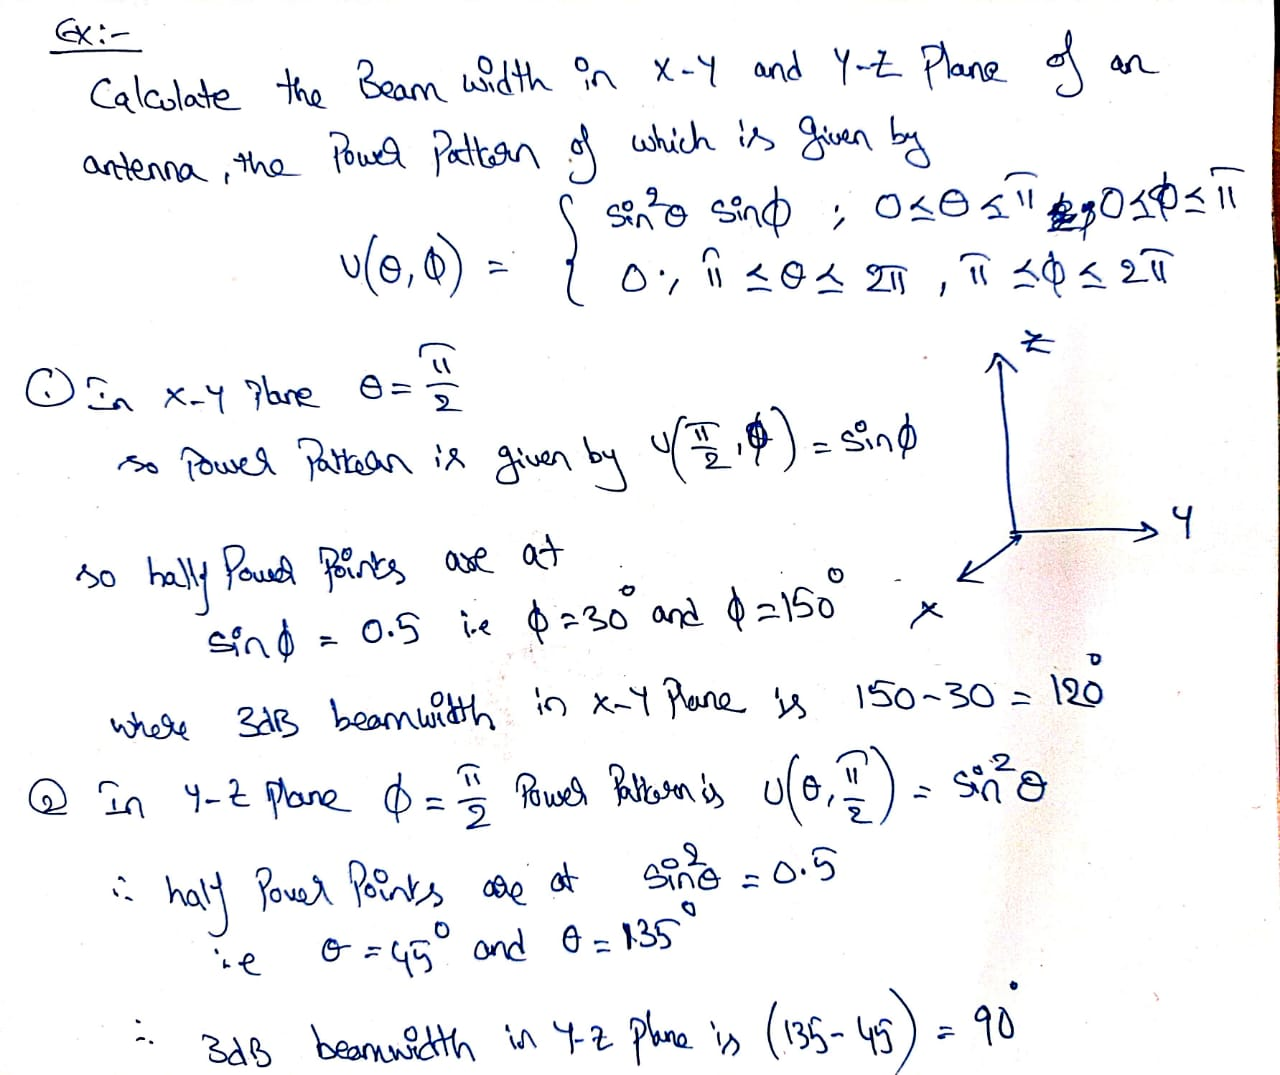 Ex:-
Calculate the Beam width in X-Y and Y-Z Plane of an
antenna, the Power Pattern of which is given by
U(θ, ϕ) = { sin²θ sinϕ ; 0≤θ≤π ; 0≤ϕ≤π
0 ; π ≤θ≤ 2π , π ≤ϕ≤ 2π
① In X-Y Plane θ = π/2
so Power Pattern is given by U(π/2, ϕ) = sinϕ
so hally Power Points are at
sinϕ = 0.5 i.e ϕ=30° and ϕ=150°
where 3dB beamwidth in X-Y Plane is 150-30 = 120°
② In Y-Z Plane ϕ = π/2 Power Pattern is U(θ, π/2) = sin²θ
∴ half Power Points are at sin²θ = 0.5
i.e θ = 45° and θ = 135°
∴ 3dB beamwidth in Y-Z plane is (135-45) = 90°
Z
Y
X